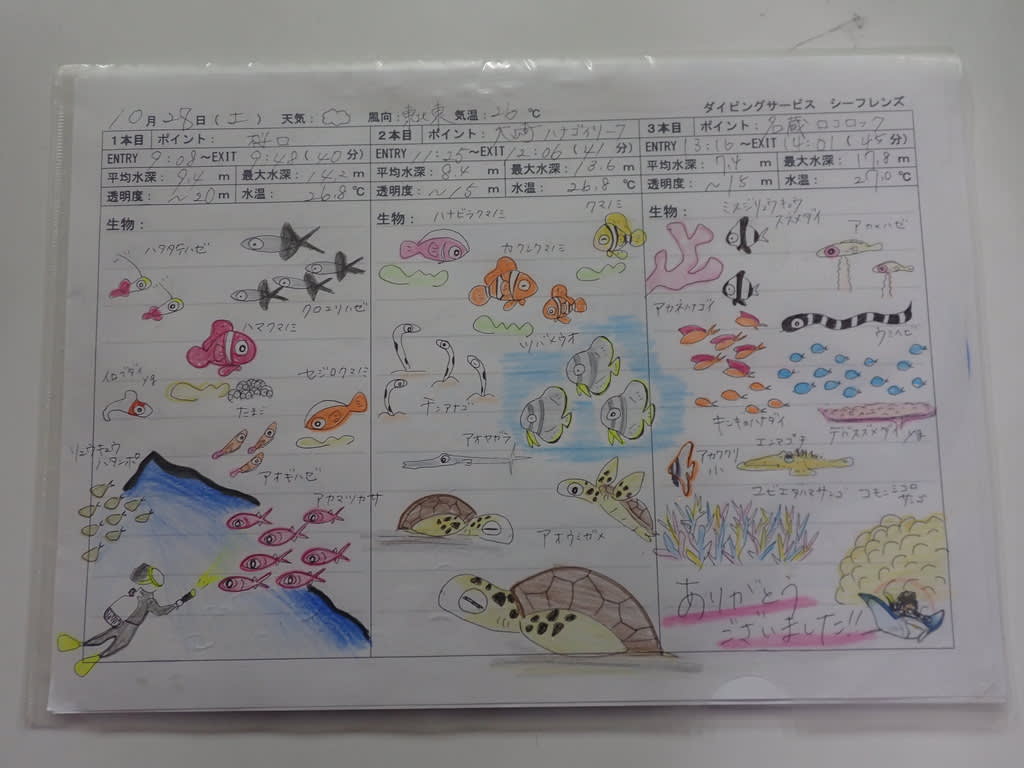 ダイビングサービス シーフレンズ
10月28日(土) 天気: 風向:東北東 気温:26℃
1本目 ポイント:
ENTRY 9:08~EXIT 9:48(40分)
平均水深: 9.4 m 最大水深: 14.2 m
透明度: ~20m 水温: 26.8℃
生物:
ハタタテハゼ
クロユリハゼ
ハマクマノミ
イロブダイyg
たまご
セジロクマノミ
アオギハゼ
リュウキュウ
ハタンポ
アカマツカサ
2本目 ポイント: 大崎 ハナゴイリーフ
ENTRY 11:25~EXIT 12:06(41分)
平均水深: 8.4 m 最大水深: 13.6 m
透明度: ~15 m 水温: 26.8℃
生物:
ハナビラクマノミ
クマノミ
カクレクマノミ
ツバメウオ
チンアナゴ
アオヤガラ
アオウミガメ
3本目 ポイント: 名蔵 ロコロック
ENTRY 13:16~EXIT 14:01(45分)
平均水深: 7.4 m 最大水深: 17.8m
透明度: ~15 m 水温: 27.0℃
生物:
ミスジリュウキュウ
スズメダイ
アカハゼ
アカネハナゴイ
ウミヘビ
キンギョハナダイ
デバスズメダイyg
アカククリ
小
エンマゴチ
ユビエダハマサンゴ
コモンシコロ
サンゴ
ありがとう
ございました!!